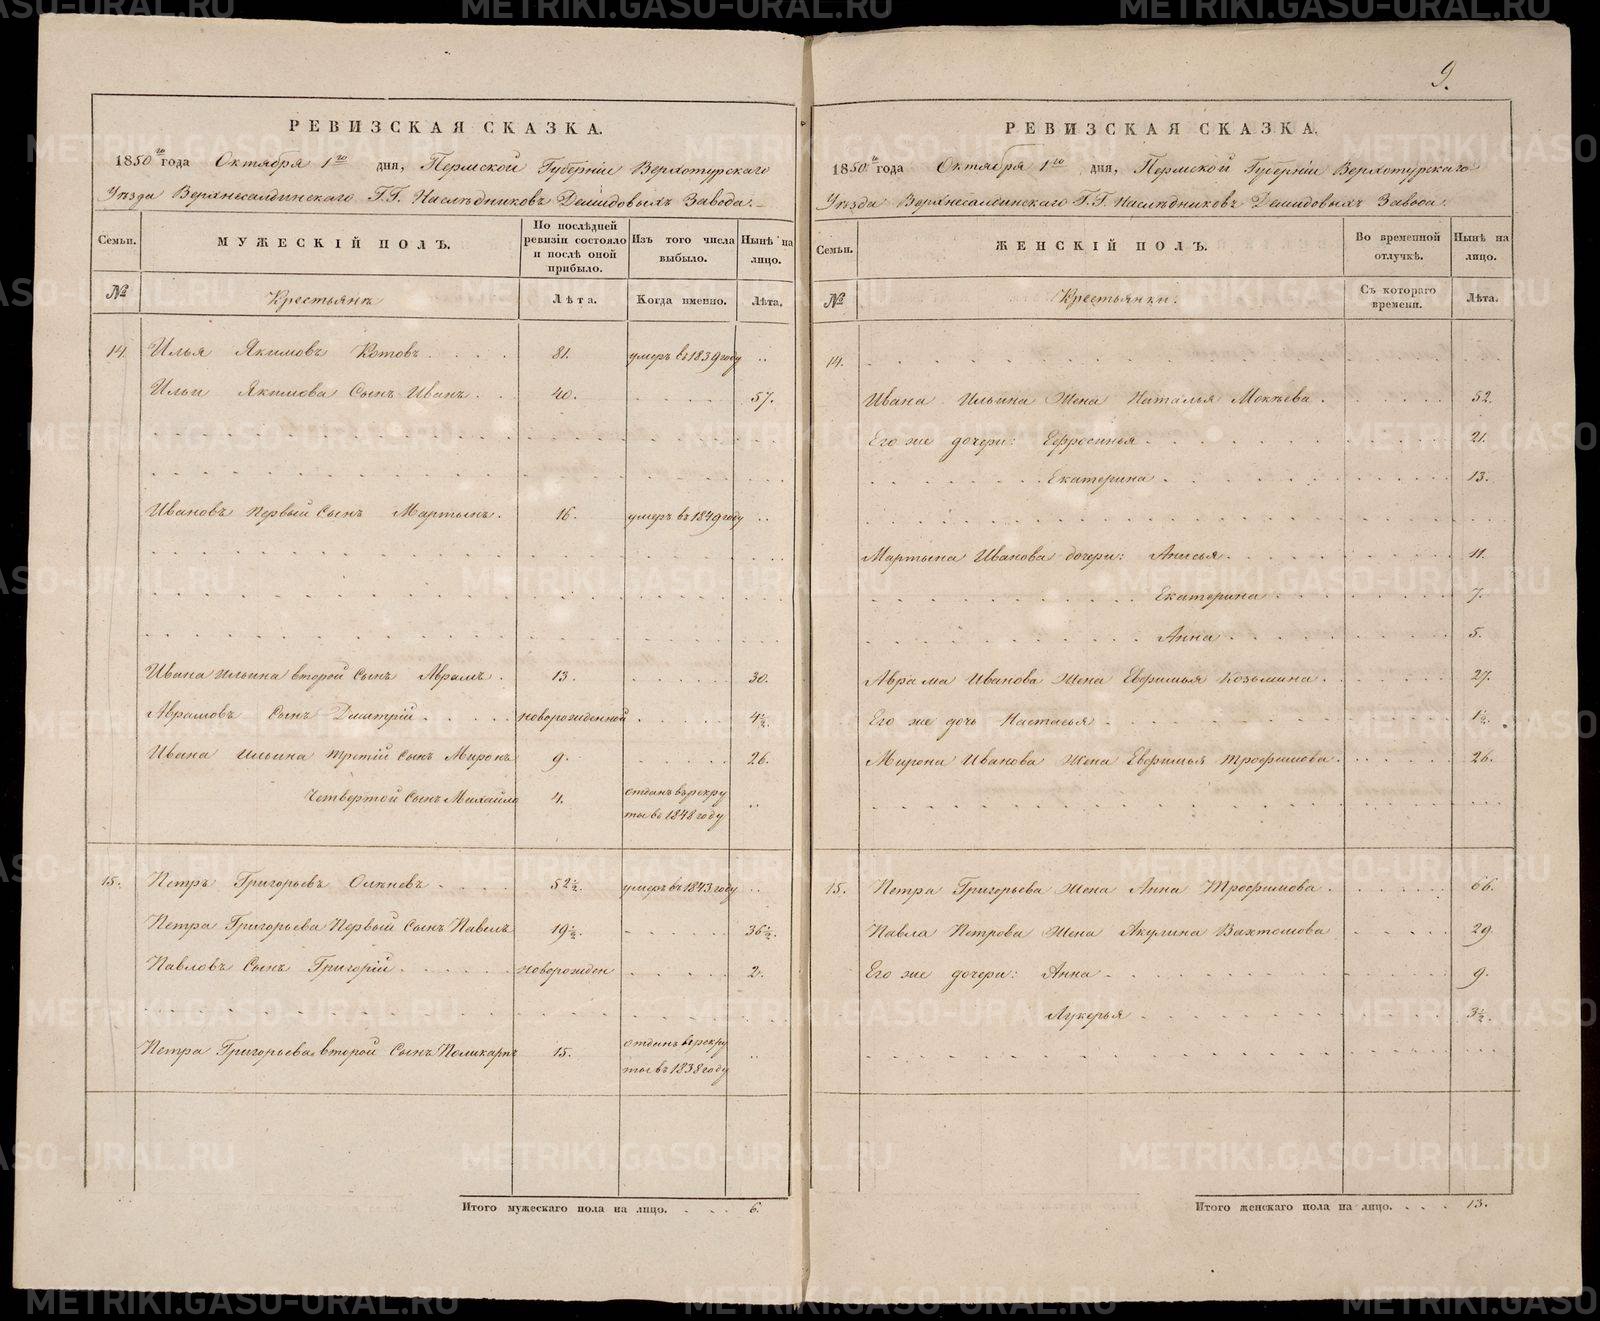 9.
РЕВИЗСКАЯ СКАЗКА.
1850го года Октября 1го дня, Пермской Губерніи Верхотурскаго
Уѣзда Верхнесалдинскаго Г.Г. Наслѣдниковъ Демидовыхъ Завода.
Семьи. МУЖЕСКІЙ ПОЛЪ. По послѣдней ревизіи состояло и послѣ оной прибыло. Изъ того числа выбыло. Нынѣ на лицо.
№ Крестьянъ Лѣта. Когда именно. Лѣта.
14. Илья Якимовъ Котовъ 81. умеръ въ 1839 году
Ильи Якимова Сынъ Иванъ 40. 57.
Ивановъ Первый Сынъ Мартынъ. 16. умеръ въ 1849 году
Ивана Ильина второй Сынъ Абрамъ. 13. 30.
Абрамовъ Сынъ Дмитрій новорожденной 4½.
Ивана Ильина третій Сынъ Миронъ 9. 26.
Четвертой Сынъ Михайло 4. отданъ въ рекруты въ 1848 году
15. Петръ Григорьевъ Оленевъ 52½. умеръ въ 1843 году
Петра Григорьева Первый Сынъ Павелъ 19½. 36½.
Павловъ Сынъ Григорій новорожден 2.
Петра Григорьева второй Сынъ Поликарпъ 15. отданъ въ рекруты въ 1838 году
Итого мужескаго пола на лицо. 6.
РЕВИЗСКАЯ СКАЗКА.
1850го года Октября 1го дня, Пермской Губерніи Верхотурскаго
Уѣзда Верхнесалдинскаго Г.Г. Наслѣдниковъ Демидовыхъ Завода.
Семьи. ЖЕНСКІЙ ПОЛЪ. Во временной отлучкѣ. Нынѣ на лицо.
№ Крестьянки. Съ котораго времени. Лѣта.
14.
Ивана Ильина Жена Наталья Мокѣева. 52.
Его же дочери: Ефросинья 21.
Екатерина 13.
Мартына Иванова дочери: Анисья 11.
Екатерина 7.
Анна 5.
Абрама Иванова Жена Евфимья Козьмина. 27.
Его же дочь Настасья 1½.
Мирона Иванова Жена Евфимья Трофимова. 26.
15. Петра Григорьева Жена Анна Трофимова. 66.
Павла Петрова Жена Акулина Вахтомова 29
Его же дочери: Анна 9.
Лукерья 3½.
Итого женскаго пола на лицо. 13.
METRIKI.GASO-URAL.RU